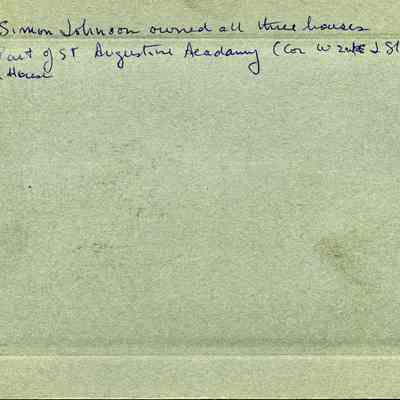 Simon Johnson owned all three houses
Part of St Augustine Academy (Cor W & St
House